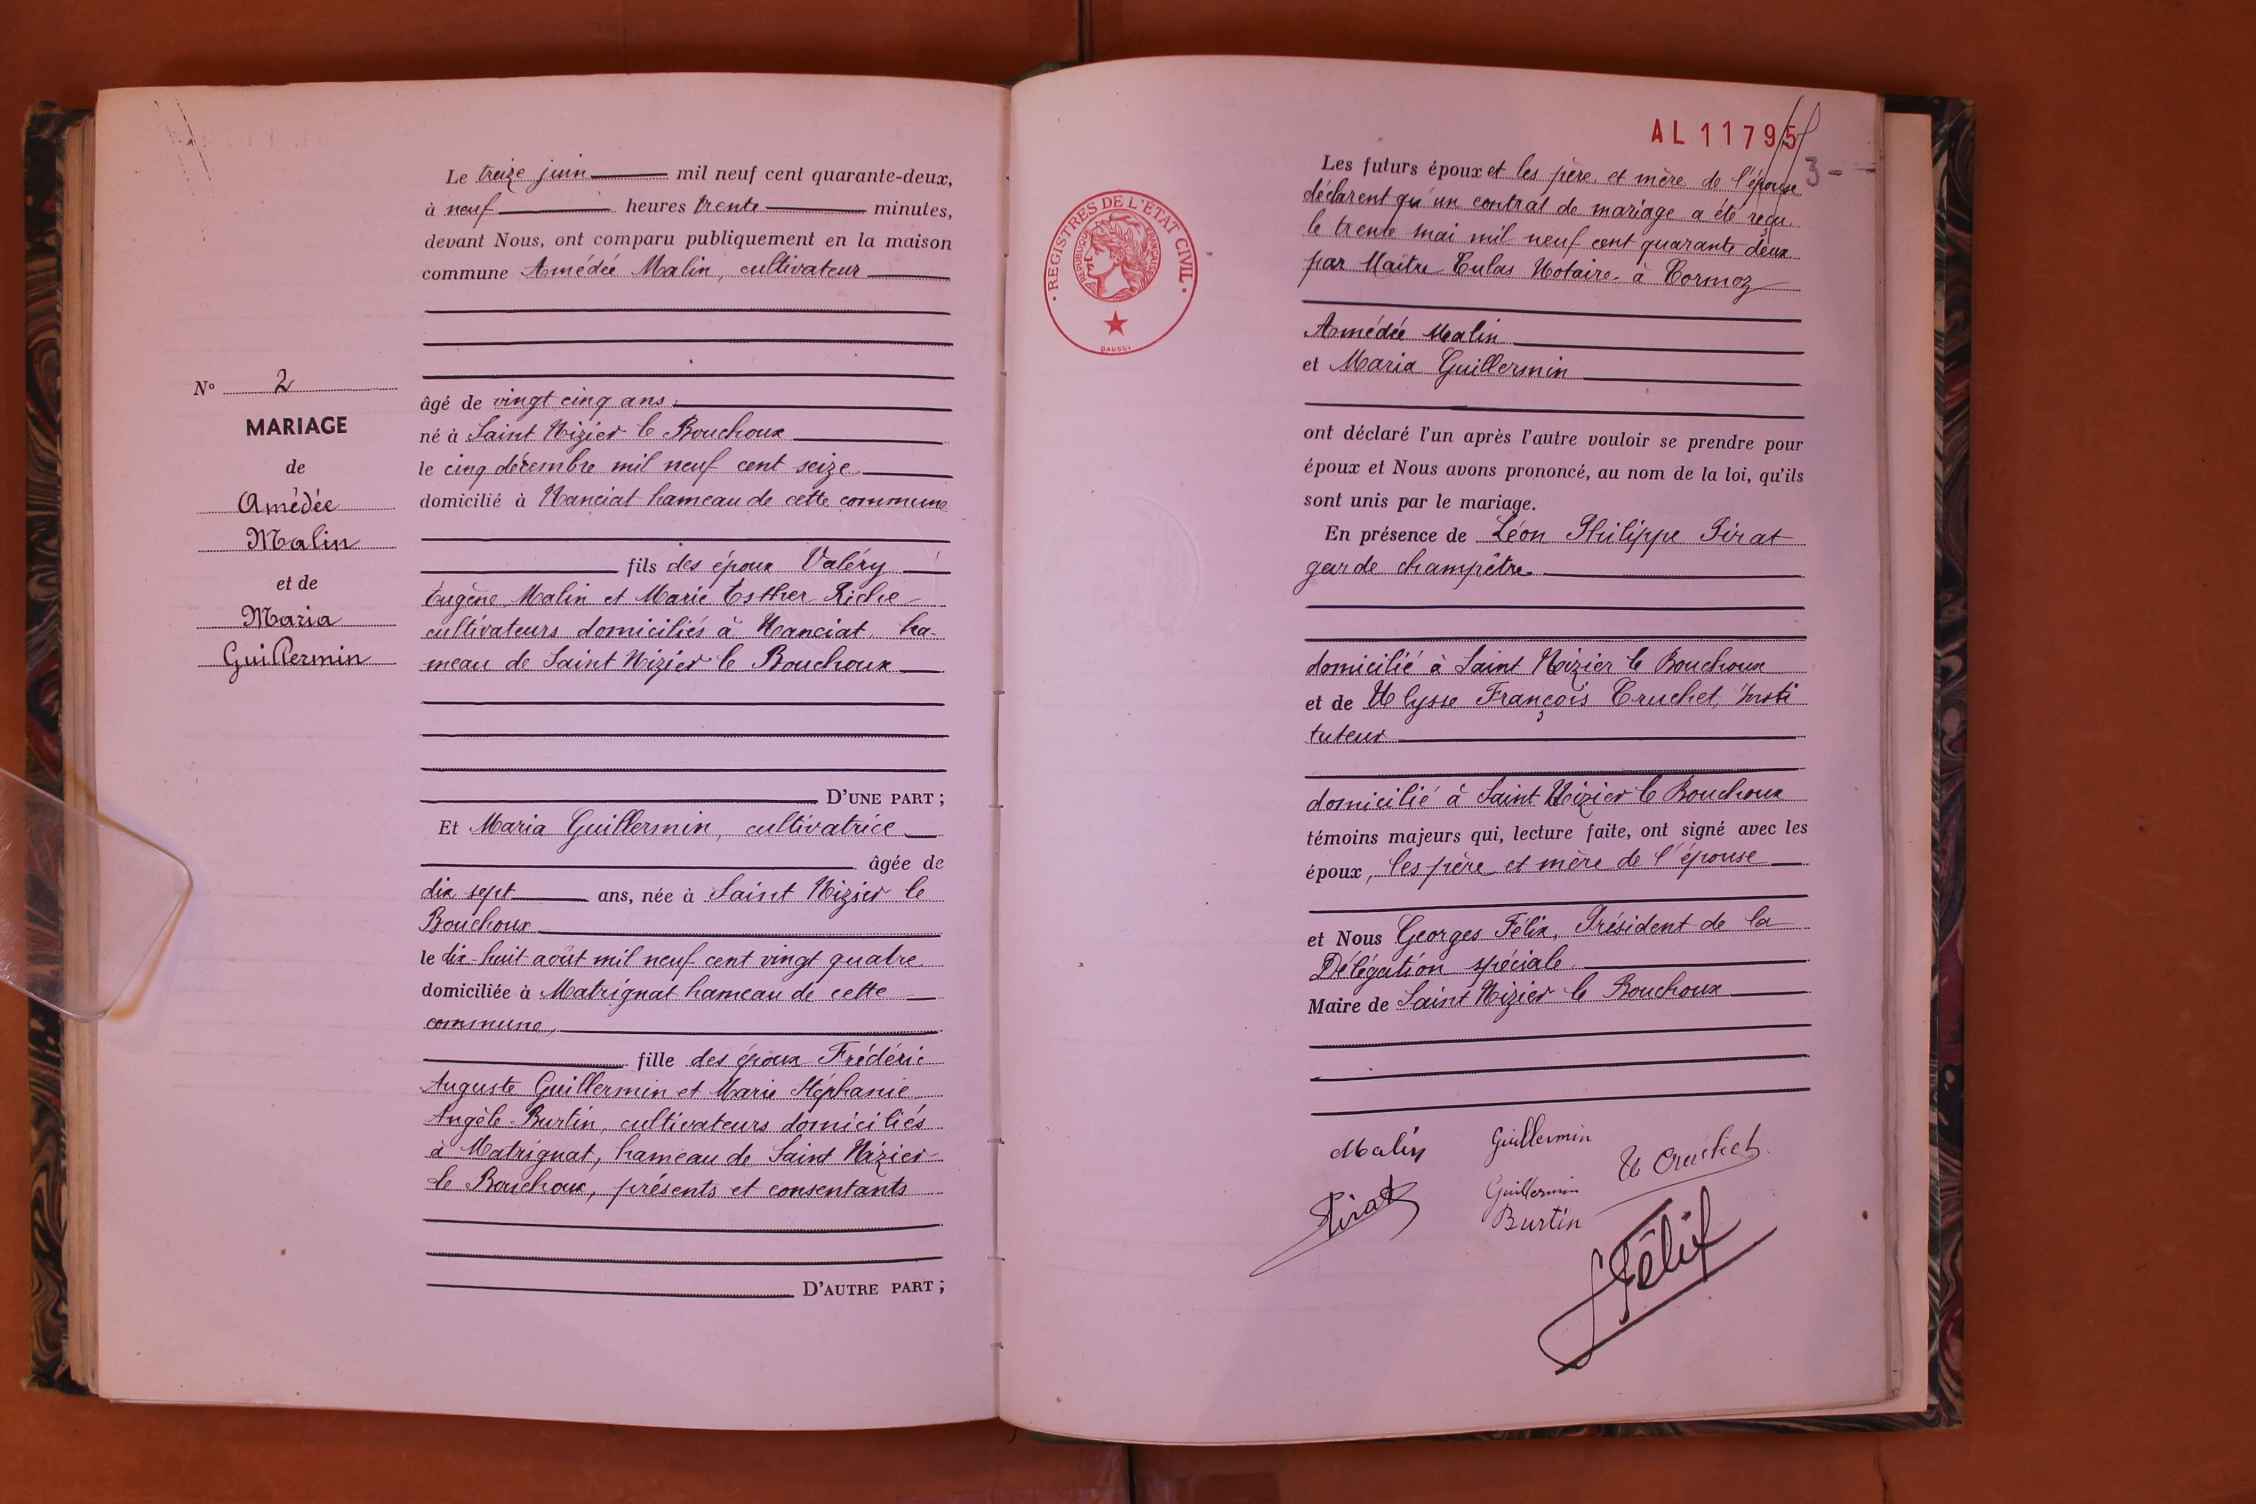 Le treize juin mil neuf cent quarante-deux,
à neuf heures trente minutes,
devant Nous, ont comparu publiquement en la maison
commune Amédée Malin, cultivateur
N° 2
MARIAGE
de
Amédée
Malin
et de
Maria
Guillermin
âgé de vingt cinq ans,
né à Saint Nizier le Bouchoux
le cinq décembre mil neuf cent seize
domicilié à Nanciat hameau de cette commune
fils des époux Valéry
Eugène Malin et Marie Esther Riche
cultivateurs domiciliés à Nanciat, ha-
meau de Saint Nizier le Bouchoux
D'UNE PART ;
Et Maria Guillermin, cultivatrice
âgée de
dix sept ans, née à Saint Nizier le
Bouchoux
le dix-huit août mil neuf cent vingt quatre
domiciliée à Matrignat hameau de cette
commune,
fille des époux Frédéric
Auguste Guillermin et Marie Stéphanie
Angèle Burtin, cultivateurs domiciliés
à Matrignat, hameau de Saint Nizier
le Bouchoux, présents et consentants
D'AUTRE PART ;
AL 11795
3
REGISTRES DE L'ETAT CIVIL
REPUBLIQUE FRANÇAISE
Les futurs époux et les père et mère de l'épouse
déclarent qu'un contrat de mariage a été reçu
le trente mai mil neuf cent quarante deux
par Maître Culas Notaire à Cormoz
Amédée Malin
et Maria Guillermin
ont déclaré l'un après l'autre vouloir se prendre pour
époux et Nous avons prononcé, au nom de la loi, qu'ils
sont unis par le mariage.
En présence de Léon Philippe Pirat
garde champêtre
domicilié à Saint Nizier le Bouchoux
et de Ulysse François Cruchet, insti
tuteur
domicilié à Saint Nizier le Bouchoux
témoins majeurs qui, lecture faite, ont signé avec les
époux, les père et mère de l'épouse
et Nous Georges Félix, Président de la
Délégation spéciale
Maire de Saint Nizier le Bouchoux
Malin Guillermin U Cruchet
Pirat Guillermin
Burtin
GFélix